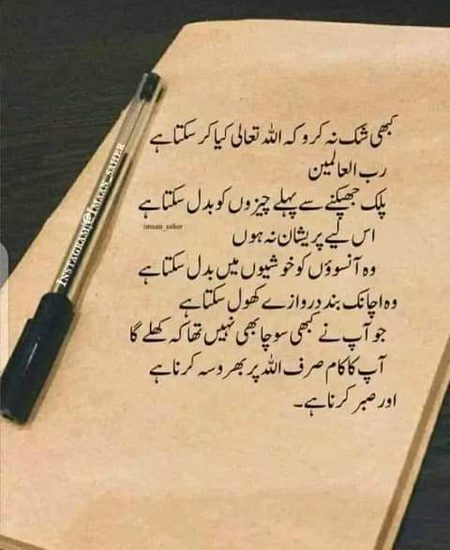 کبھی شک نہ کرو کہ اللہ تعالی کیا کر سکتا ہے
رب العالمین
پلک جھپکنے سے پہلے چیزوں کو بدل سکتا ہے
imaan_saher
اس لیے پریشان نہ ہوں
وہ آنسوؤں کو خوشیوں میں بدل سکتا ہے
وہ اچانک بند دروازے کھول سکتا ہے
جو آپ نے کبھی سوچا بھی نہیں تھا کہ کھلے گا
آپ کا کام صرف اللہ پر بھروسہ کرنا ہے
اور صبر کرنا ہے۔
INSTAGRAM@IMAAN_SAHER